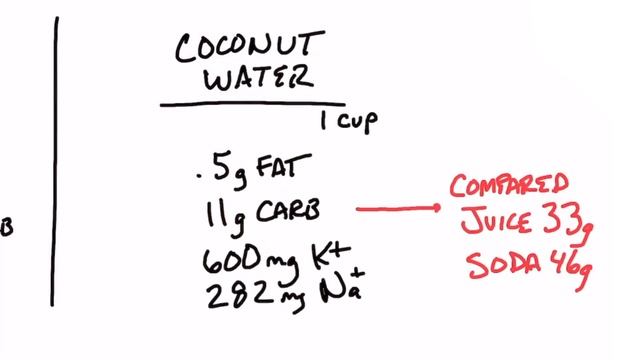 COCONUT
WATER
1 CUP
.5g FAT
11g CARB
600mg K+
282mg Na+
B
COMPARED
JUICE 33g
SODA 46g